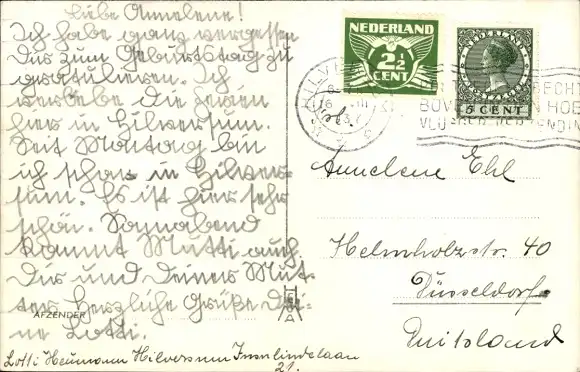 Liebe Annelene!
Ich habe ganz vergessen
Dir zum Geburtstag zu
gratulieren. Ich
verlebe die Ferien
hier in Hilversum.
Seit Montag bin
ich schon in Hilver-
sum. Es ist hier sehr
schön. Sonnabend
kommt Mutti auch.
Dir und Deiner Mut-
ter herzliche Grüße Dei-
ne Lotti.
AFZENDER
Lotti Heumann Hilversum Insulindelaan
21.
NEDERLAND
2½
CENT
NEDERLAND
5 CENT
HILV
16
37
RECHT
BOV
HOE
VLU
Annelene Ehl
Helmholzstr. 40
Düsseldorf
Duitsland